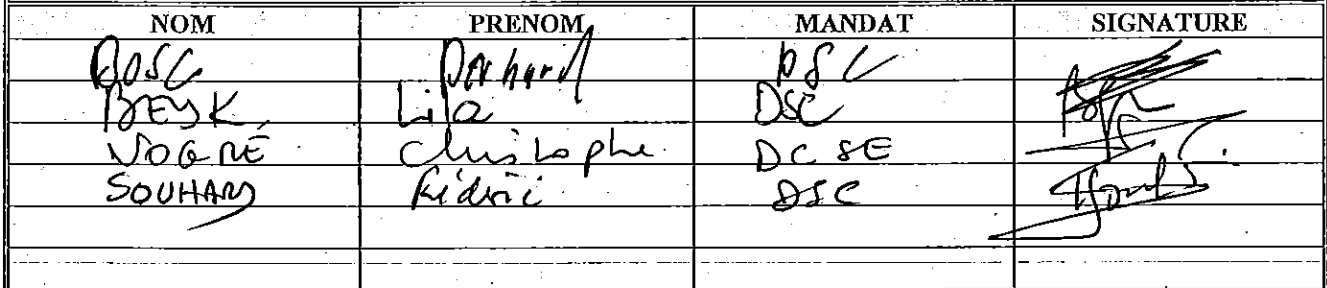 NOM PRENOM MANDAT SIGNATURE
DSC
BEYSK Lila DSC
NOGRÉ Christophe DCSE
SOUHAM Frédéric DSC